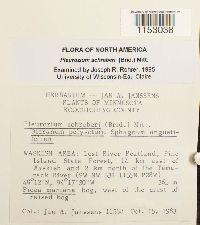 1153038
FLORA OF NORTH AMERICA
Pleurozium schreberi (Brid.) Mitt.
Examined by Joseph R. Rohrer, 1985
University of Wisconsin-Eau Claire
HERBARIUM -- JAN A. JANSSENS
PLANTS OF MINNESOTA
KOOCHICHING COUNTY
Pleurozium schreberi (Brid.) Mitt.
Dicranum polysetum, Sphagnum angusti-
folium
WASKISH AREA: Lost River Peatland, Pine
Island State Forest, 14 km east of
Waskish and 2 km north of the Tama-
rack River
48°12' N, 94°17'30"W
Picea mariana bog, west of the crest of
raised bog
Col.: Jan A. Janssens 11552 Oct. 15, 1983